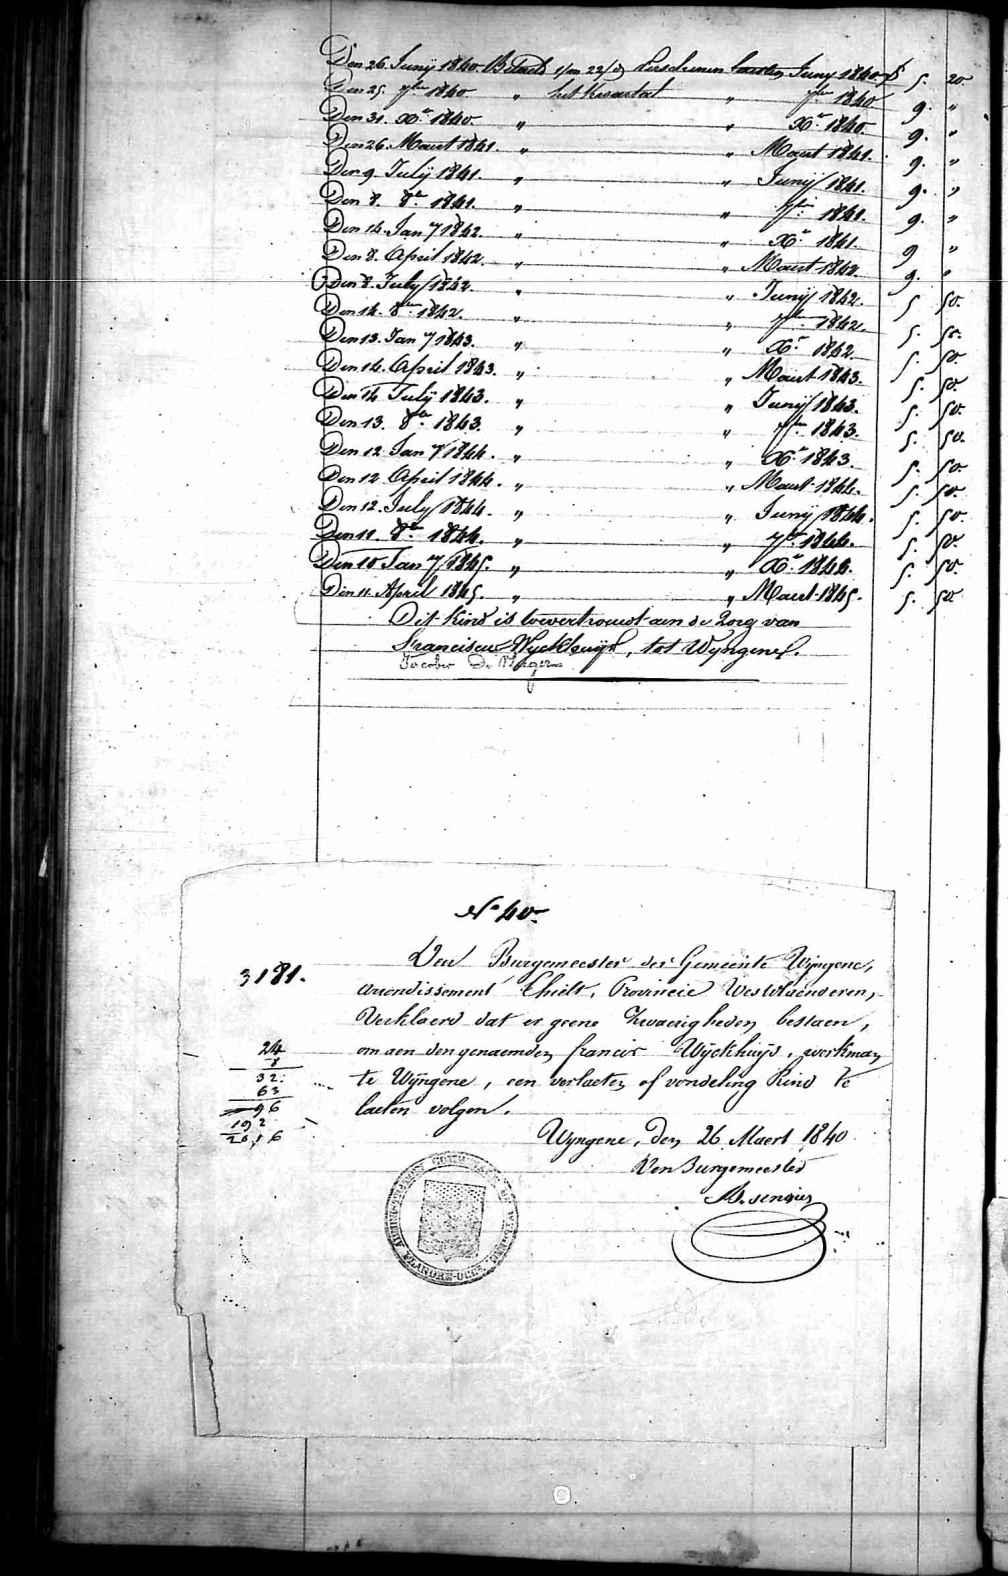 Den 26 Junij 1840 Betaelt verschenen laesten Juny 1840 f 5. 20
Den 25. 7ber 1840 " het kwartael " 7ber 1840 9. "
Den 31. Xr 1840. " " Xr 1840 9. "
Den 26 Maert 1841. " " Maert 1841. 9. "
Den 9 Julij 1841. " " Junij 1841. 9. "
Den 8. 8er 1841. " " 7ber 1841. 9. "
Den 14 Jany 1842 " " Xr 1841. 9 "
Den 8. April 1842. " " Maert 1842. 9. "
Den 8. July 1842. " " Junij 1842. 5 50.
Den 14. 8er 1842. " " 7ber 1842. 5. 50.
Den 13. Jany 1843. " " Xr 1842. 5. 50.
Den 14. April 1843. " " Maert 1843. 5. 50.
Den 14 Julij 1843. " " Junij 1843. 5. 50.
Den 13. 8er 1843. " " 7ber 1843. 5. 50.
Den 12. Jany 1844. " " Xr 1843. 5. 50
Den 12 April 1844. " " Maert 1844. 5. 50.
Den 12. July 1844. " " Junij 1844. 5. 50.
Den 11. 8er 1844. " " 7er 1844. 5. 50.
Den 10 Jany 1845. " " Xr 1844. 5. 50.
Den 11. April 1845. " " Maert 1845. 5. 50
Dit kind is toevertrouwt aen de zorg van
Franciscus Wyckhuijs, tot Wyngene.
Jacobus De
No 40.
3181.
Den Burgemeester der Gemeente Wijngene,
arrondissement Thielt, Provincie Westvlaenderen,
Verklaerd dat er geene zwaerigheden bestaen,
om aen den genaemden francis Wijckhuijs, werkman
te Wijngene, een verlaeten of vondeling kind te
laeten volgen.
24
8
32
63
96
192
20,16
Wyngene, den 26 Maert 1840
Den Burgemeester
FLANDRE-OCC.